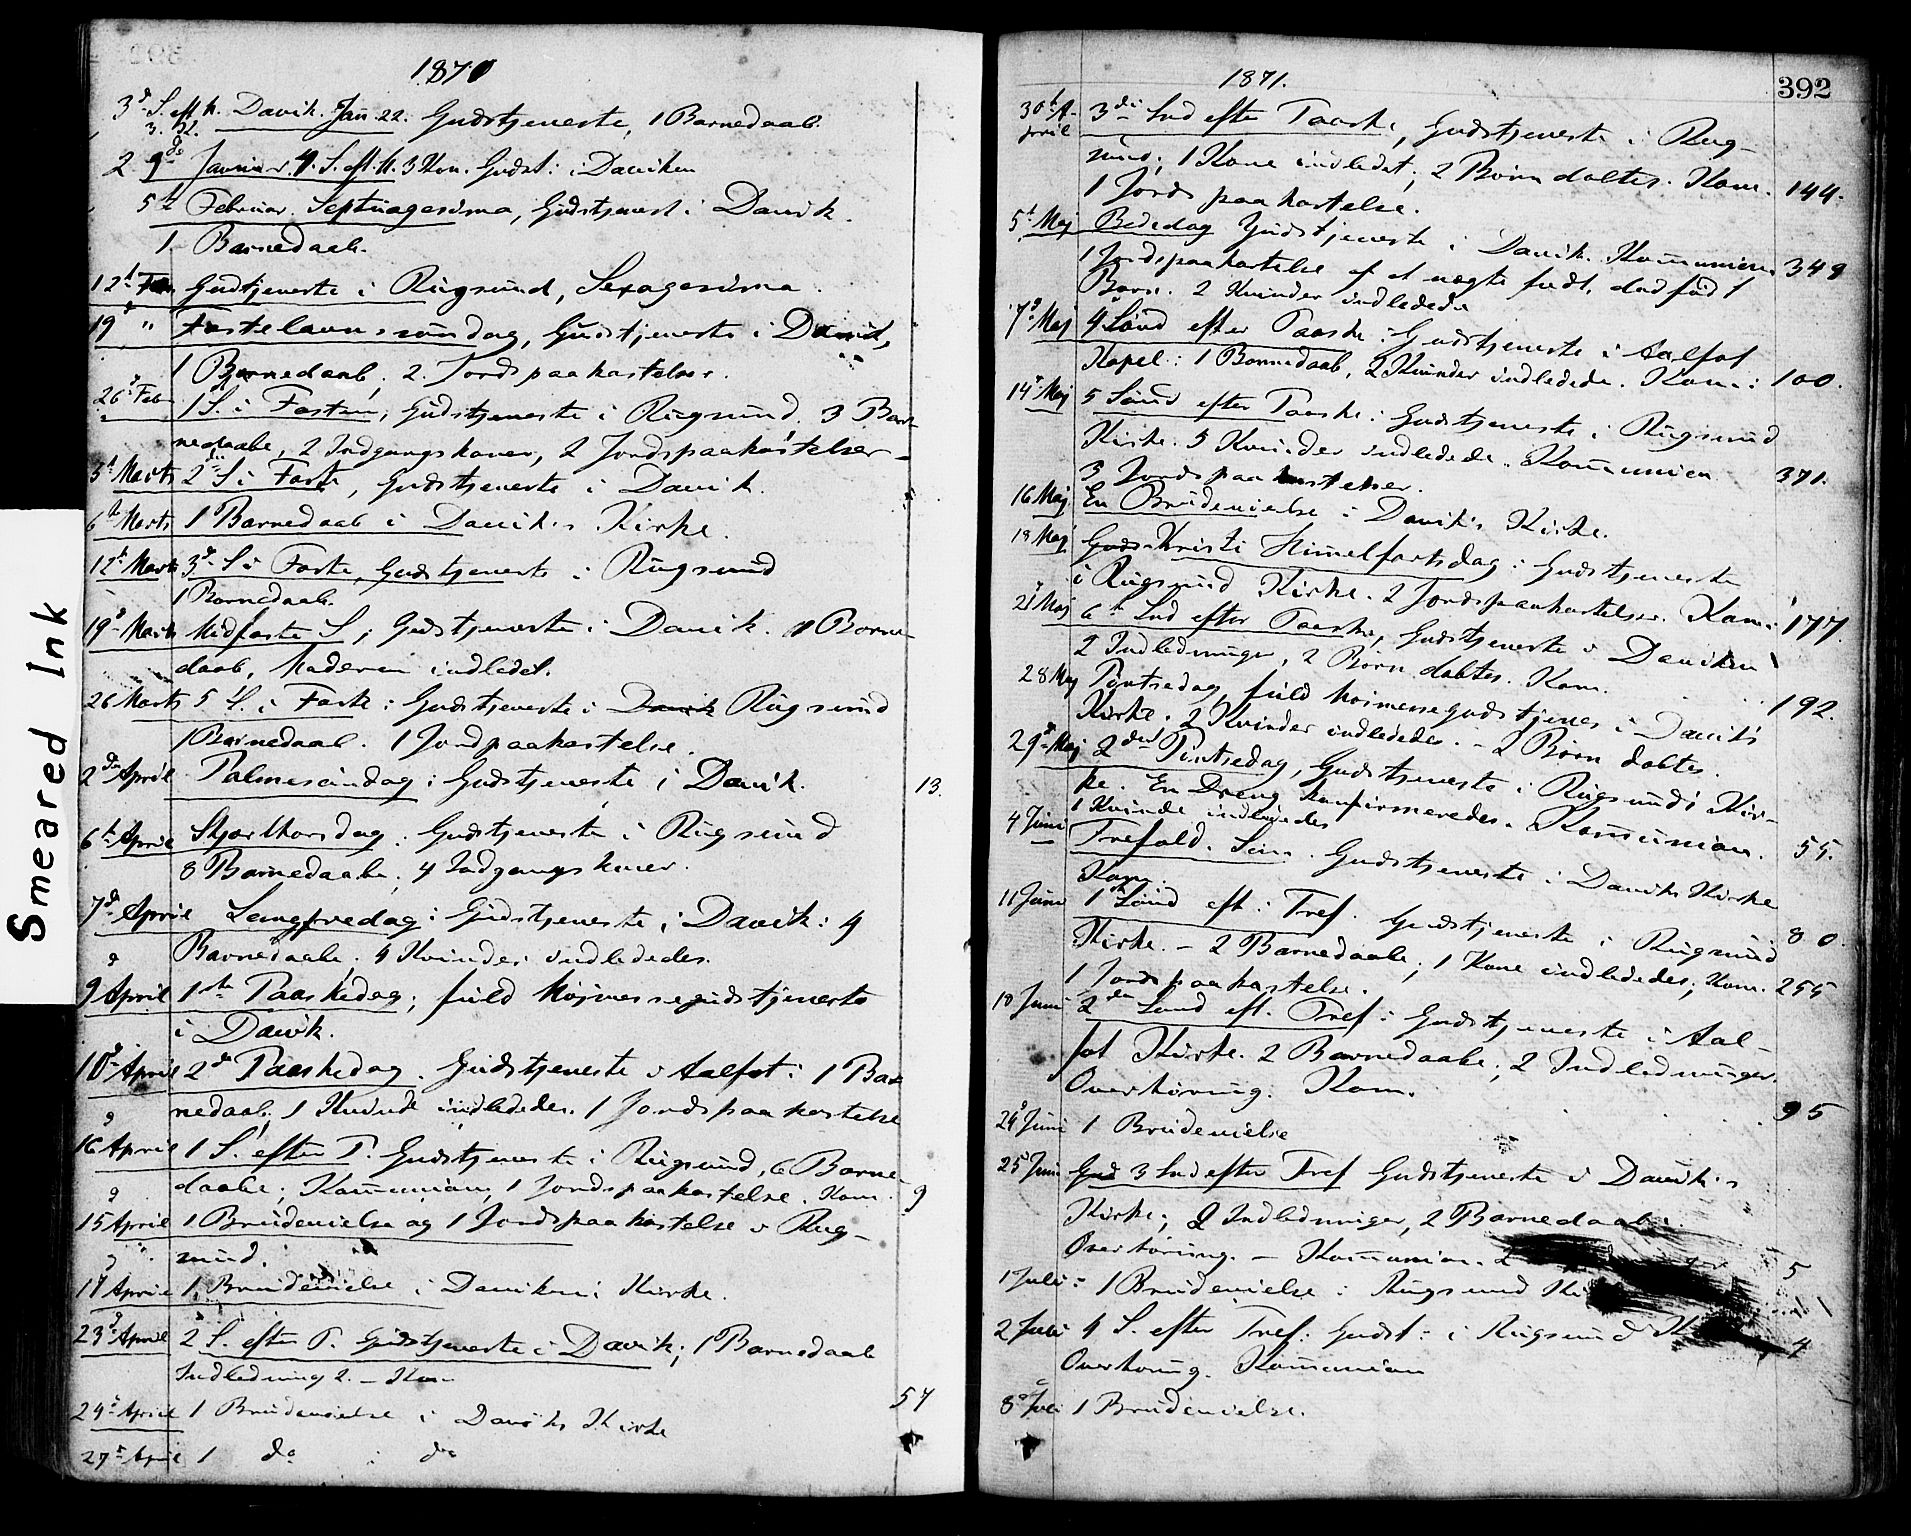 1870
3d S. eft. H. Davik. Jan 22. Gudstjeneste, 1 Barnedaab.
2 9de Januar. 4. S. eft. H. 3 Kon. Gudst: i Daviken
5te Februar. Septuagesima, Gudstjenest i Davik.
1 Barnedaab.
12t Feb Gudtjeneste i Rugsund, Sexagesima.
19d " Fastelavnssøndag, Gudstjeneste i Davik,
1 Barnedaab, 2. Jordspaakastelser.
26d Febr 1 S. i Fasten, Gudstjeneste i Rugsund. 3 Bar-
nedaabe, 2 Indgangskoner, 2 Jordspaakastelser
5t Marts 2 S i Faste, Gudstjeneste i Davik.
6te Marts 1 Barnedaab i Daviks Kirke.
12t Marts 3d S i Faste, Gudstjeneste i Rugsund
1 Barnedaab.
19d Marts Midfaste S, Gudstjeneste i Davik. 1 Barne-
daab, Moderen indledet.
26 Marts 5 S. i Faste: Gudstjeneste i Davik Rugsund
1 Barnedaab. 1 Jordpaakastelse.
2den April Palmesøndag: Gudstjeneste i Davik. 13.
6te April Skjærthorsdag: Gudstjeneste i Rugsund
8 Barnedaabe, 4 Indgangskoner.
7de April Langfredag: Gudstjeneste i Davik: 4
Barnedaabe. 4 Kvinder indlededes.
9 April 1ste Paaskedag; fuld Højmessegudstjeneste
i Davik.
10d April 2d Paaskedag. Gudstjeneste i Aalfot: 1 Bar
nedaab, 1 Kvinde indlededes. 1 Jordspaakastelse
16 April 1 S. efter P. Gudstjeneste i Rugsund, 6 Barne-
daabe; Kommunion, 1 Jordspaakastelse. Kom. 9
15 April 1 Brudevielse og 1 Jordspaakastelse i Rug-
sund.
17 April 1 Brudevielse i Daviken i Kirke.
23d April 2 S. efter P. Gudstjeneste i Davik; 1 Barnedaab
Indledning 2. – Kom 57
24d April 1 Brudevielse i Daviks Kirke
27d April 1 do i do
1871.
392
30t A-
pril 3die Snd efter Paaske, Gudstjeneste i Rug-
sund; 1 Kone indledet; 2 Børn døbtes. Kom. 144.
1 Jordspaakastelse.
5t Maj Bededag Gudstjeneste i Davik. Kommunion 349
1 Jordspaakastelse af et uægte født, dødfødt
Barn. 2 Kvinder indledede
7d Maj 4 Sønd efter Paaske: Gudstjeneste i Aalfot
Kapel: 1 Barnedaab, 2 Kvinder indledede. Kom.: 100.
14d Maj 5 Sønd efter Paaske: Gudstjeneste i Rugsund
Kirke. 5 Kvinder indledede. Kommunion 371.
3 Jordspaakastelser.
16 Maj En Brudevielse i Daviks Kirke.
18 Maj Guds Kristi Himmelfartsdag: Gudstjeneste
i Rugsund Kirke. 2 Jordspaakastelser. Kom: 177.
21 Maj 6t Snd efter Paaske, Gudstjeneste i Daviken
2 Indledninger, 2 Børn døbtes. Kom. 192.
28 Maj Pintsedag, fuld Høimessegudstjenes i Daviks
Kirke. 2 Kvinder indlededes. – 2 Børn døbtes.
29d Maj 2den Pintsedag, Gudstjeneste i Rugsunds Kir-
ke. En Dreng konfirmeredes. Kommunion. 55.
1 Kvinde indlededes
4 Juni Trefold. Søn. Gudstjeneste i Daviks Kirke
Kom. 80.
11 Juni 1st Sønd eft: Tref. Gudstjeneste i Rugsund
Kirke. – 2 Barnedaabe; 1 Kone indlededes; Kom. 255
1 Jordspaakastelse.
18 Juni 2den Sønd eft. Tref: Gudstjeneste i Aal-
fot Kirke. 2 Barnedaabe, 2 Indledninger.
Overhøring. Kom. 95
24d Juni 1 Brudevielse
25d Juni Gud 3 Snd efter Tref Gudstjeneste i Davik's
Kirke; 2 Indledninger, 2 Barnedaab.
Overhøring. – Kommunion. 2 5
1 Juli: 1 Brudevielse i Rugsund Ki
2 Juli 4 S. efter Tref: Gudst: i Rugsund K 4
Overhøring. Kommunion
8d Juli 1 Brudevielse.
Smeared Ink